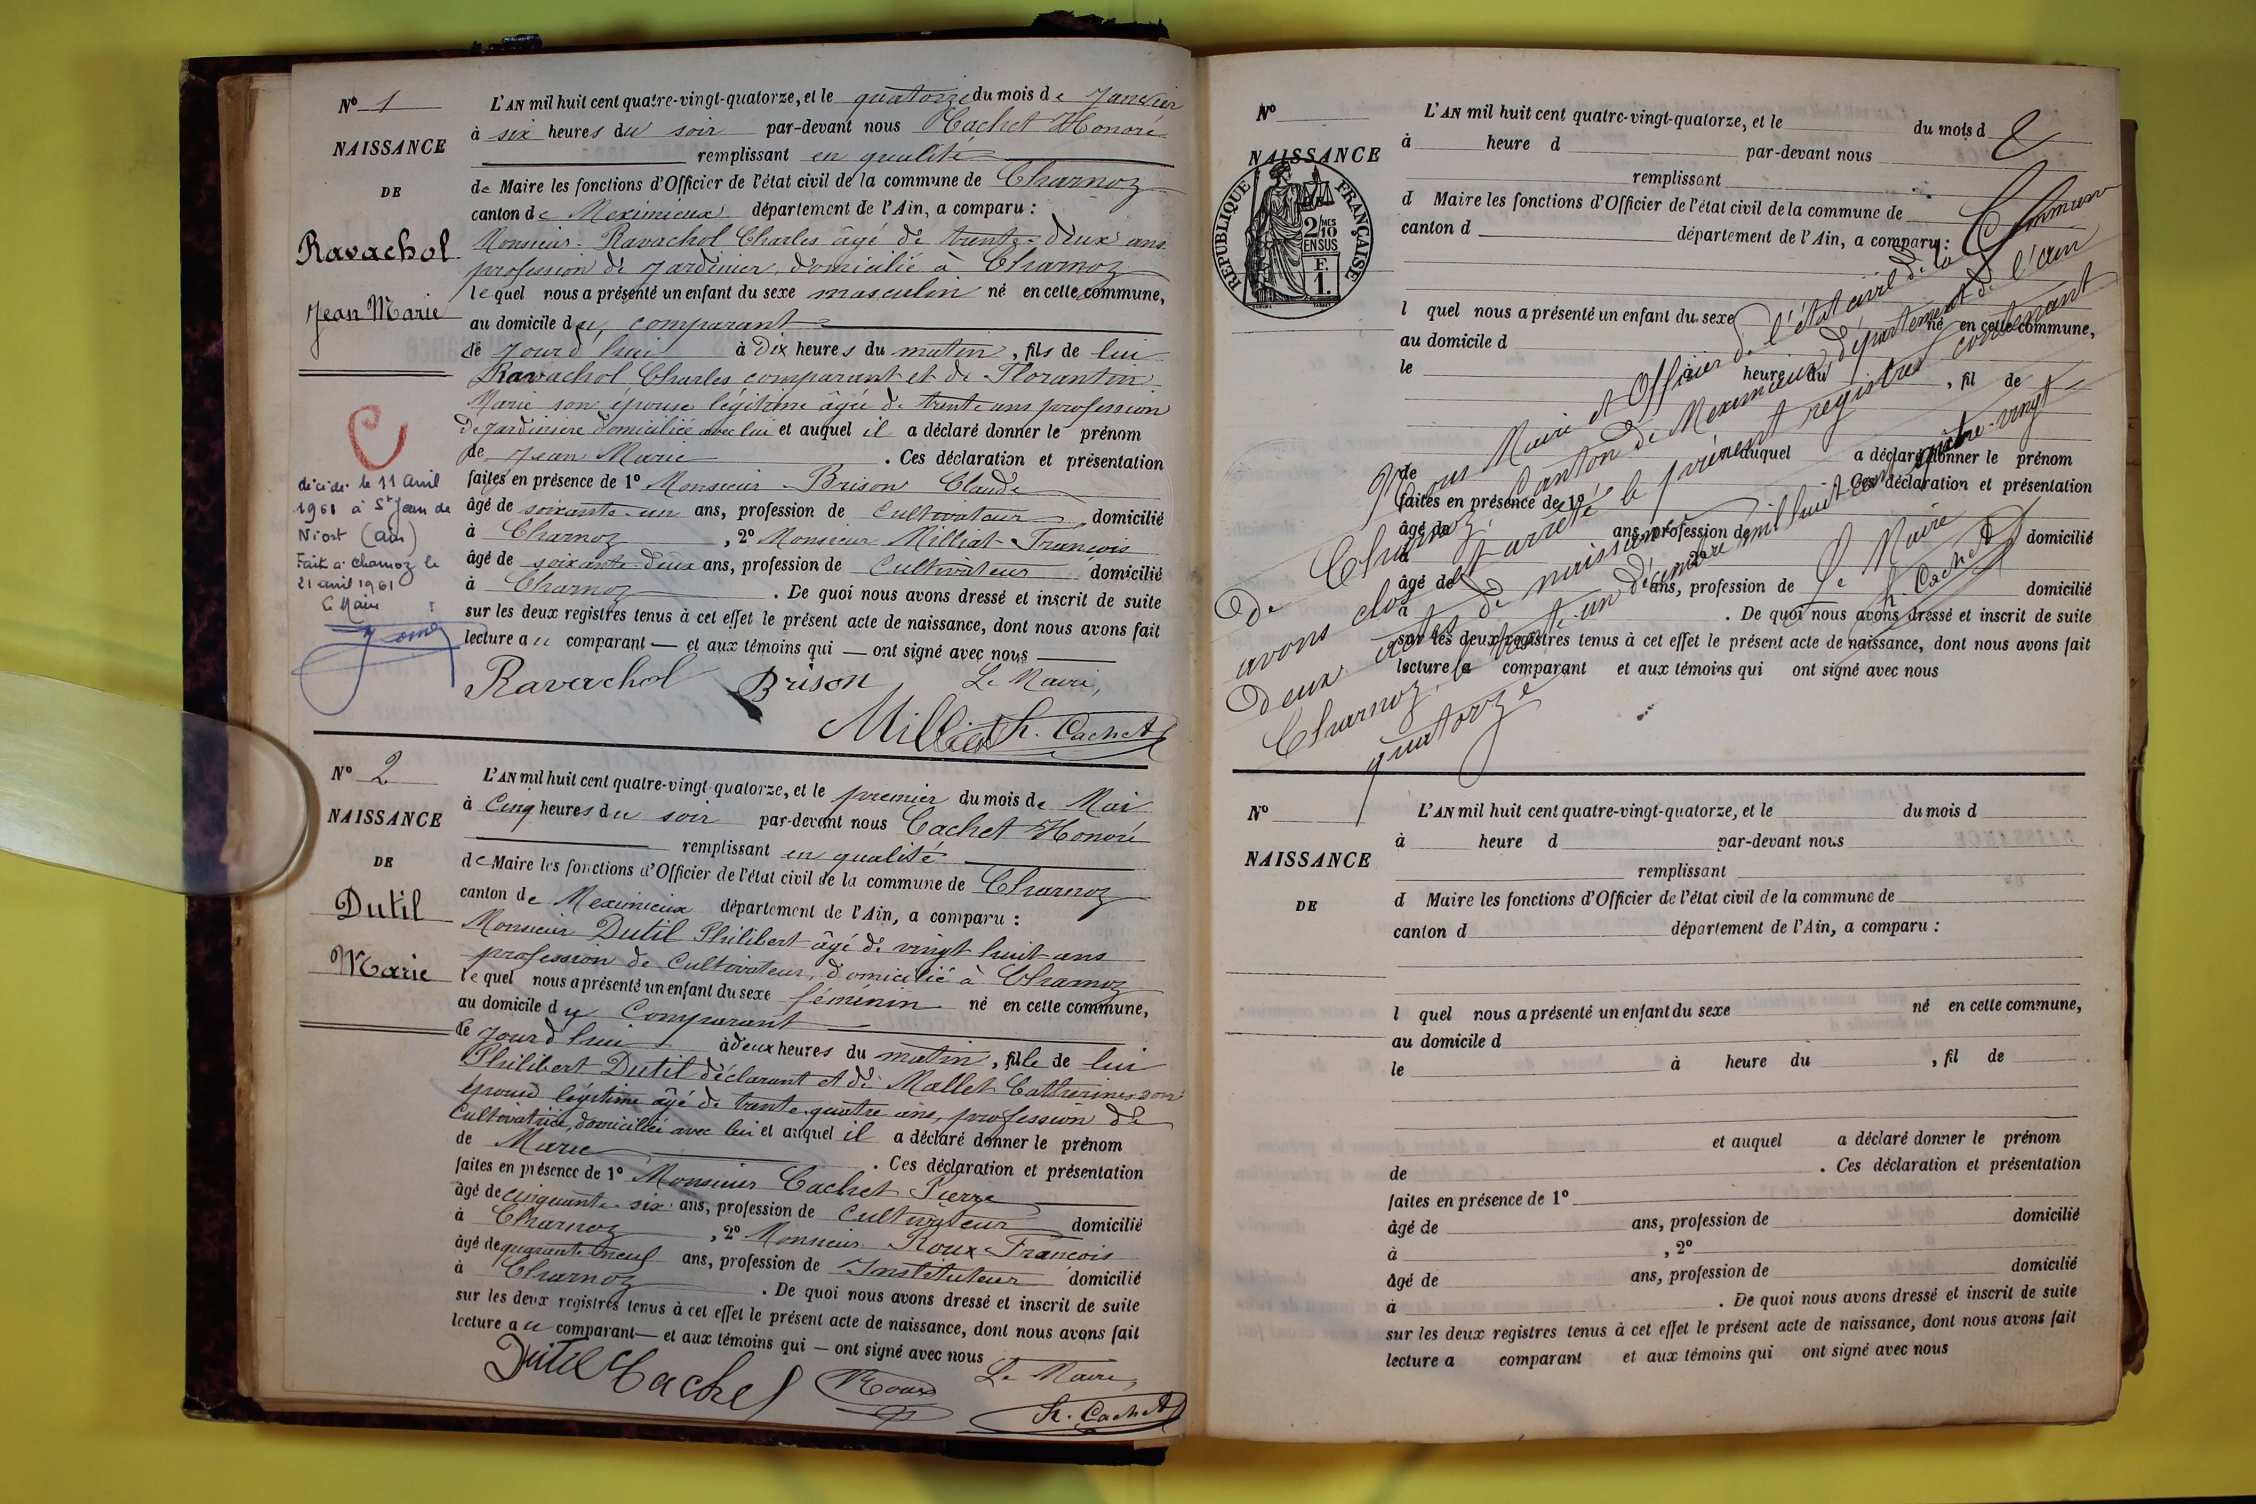 Nº 1
NAISSANCE
DE
Ravachol
Jean Marie
décédé le 11 avril
1961 à St Jean de
Niost (Ain)
Fait à Charnoz le
21 avril 1961
Le Maire
L'AN mil huit cent quatre-vingt-quatorze, et le quatorze du mois de Janvier
à six heures du soir par-devant nous Cachet Honoré
remplissant en qualité
de Maire les fonctions d'Officier de l'état civil de la commune de Charnoz
canton de Meximieux département de l'Ain, a comparu :
Monsieur Ravachol Charles âgé de trente-deux ans
profession de Jardinier, domicilié à Charnoz
lequel nous a présenté un enfant du sexe masculin né en cette commune,
au domicile du comparant
le jourd'hui à Dix heures du matin, fils de lui
Ravachol Charles comparant et de Florantin
Marie son épouse légitime âgée de trente ans profession
de Jardinière domiciliée avec lui et auquel il a déclaré donner le prénom
de Jean Marie . Ces déclaration et présentation
faites en présence de 1º Monsieur Brison Claude
âgé de soixante-un ans, profession de Cultivateur domicilié
à Charnoz , 2º Monsieur Milliat François
âgé de soixante-deux ans, profession de Cultivateur domicilié
à Charnoz . De quoi nous avons dressé et inscrit de suite
sur les deux registres tenus à cet effet le présent acte de naissance, dont nous avons fait
lecture au comparant — et aux témoins qui — ont signé avec nous
Ravachol Brison Le Maire,
Milliat h. Cachet
Nº 2
NAISSANCE
DE
Dutil
Marie
L'AN mil huit cent quatre-vingt-quatorze, et le premier du mois de Mai
à Cinq heures du soir par-devant nous Cachet Honoré
remplissant en qualité
de Maire les fonctions d'Officier de l'état civil de la commune de Charnoz
canton de Meximieux département de l'Ain, a comparu :
Monsieur Dutil Philibert âgé de vingt huit ans
profession de Cultivateur, domicilié à Charnoz
lequel nous a présenté un enfant du sexe féminin né en cette commune,
au domicile du Comparant
le jourd'hui à deux heures du matin, fille de lui
Philibert Dutil déclarant et de Mallet Catherine son
épouse légitime âgé de trente-quatre ans, profession de
Cultivatrice, domiciliée avec lui et auquel il a déclaré donner le prénom
de Marie . Ces déclaration et présentation
faites en présence de 1º Monsieur Cachet Pierre
âgé de cinquante-six ans, profession de Cultivateur domicilié
à Charnoz , 2º Monsieur Roux François
âgé de quarante neuf ans, profession de Instituteur domicilié
à Charnoz . De quoi nous avons dressé et inscrit de suite
sur les deux registres tenus à cet effet le présent acte de naissance, dont nous avons fait
lecture au comparant — et aux témoins qui — ont signé avec nous
Dutil Cachet Roux Le Maire,
h. Cachet
Nº
NAISSANCE
RÉPUBLIQUE FRANÇAISE
2/10 MES
EN SUS
F.
1.
L'AN mil huit cent quatre-vingt-quatorze, et le du mois d
à heure d par-devant nous
remplissant
d Maire les fonctions d'Officier de l'état civil de la commune de
canton d département de l'Ain, a comparu :
l quel nous a présenté un enfant du sexe né en cette commune,
au domicile d
le à heure du , fil de
et auquel a déclaré donner le prénom
de . Ces déclaration et présentation
faites en présence de 1º
âgé de ans, profession de domicilié
à
âgé de ans, profession de domicilié
à . De quoi nous avons dressé et inscrit de suite
sur les deux registres tenus à cet effet le présent acte de naissance, dont nous avons fait
lecture a comparant et aux témoins qui ont signé avec nous
Nous Maire et Officier de l'état civil de la Commune
de Charnoz, Canton de Meximieux département de l'Ain
avons clos et arrêté le présent registre contenant
deux actes de naissance
Charnoz, le trente-un décembre mil huit cent quatre-vingt
quatorze
Le Maire
h. Cachet
Nº
NAISSANCE
DE
L'AN mil huit cent quatre-vingt-quatorze, et le du mois d
à heure d par-devant nous
remplissant
d Maire les fonctions d'Officier de l'état civil de la commune de
canton d département de l'Ain, a comparu :
l quel nous a présenté un enfant du sexe né en cette commune,
au domicile d
le à heure du , fil de
et auquel a déclaré donner le prénom
de . Ces déclaration et présentation
faites en présence de 1º
âgé de ans, profession de domicilié
à , 2º
âgé de ans, profession de domicilié
à . De quoi nous avons dressé et inscrit de suite
sur les deux registres tenus à cet effet le présent acte de naissance, dont nous avons fait
lecture a comparant et aux témoins qui ont signé avec nous